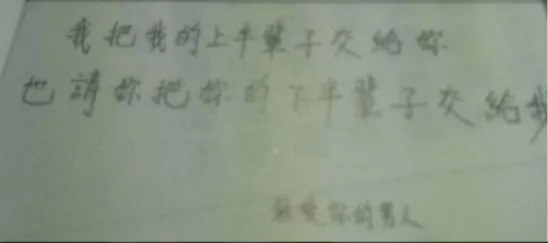 我把我的上半輩子交給妳
也請妳把妳的下半輩子交給我
最愛妳的男人